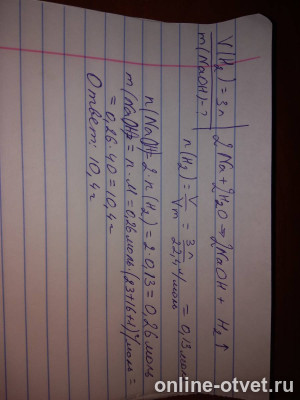 V(H₂) = 3л | 2Na + 2H₂O → 2NaOH + H₂↑
m(NaOH) - ?
n(H₂) = V/Vm = 3л/22,4 л/моль = 0,13 моль
n(NaOH) = 2·n(H₂) = 2·0,13 = 0,26 моль
m(NaOH) = n·M = 0,26 моль·(23+16+1) г/моль =
= 0,26·40 = 10,4 г
Ответ: 10,4 г
online-otvet.ru